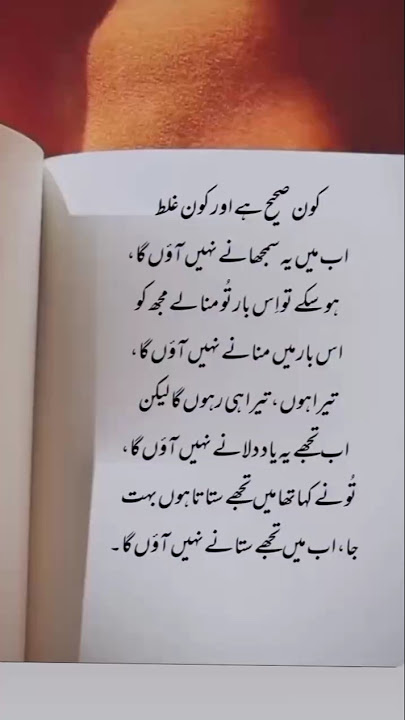 کون صحیح ہے اور کون غلط
اب میں یہ سمجھانے نہیں آؤں گا،
ہو سکے تو اِس بار تُو منا لے مجھ کو
اس بار میں منانے نہیں آؤں گا،
تیرا ہوں، تیرا ہی رہوں گا لیکن
اب تجھے یہ یاد دلانے نہیں آؤں گا،
تُو نے کہا تھا میں تجھے ستاتا ہوں بہت
جا، اب میں تجھے ستانے نہیں آؤں گا۔